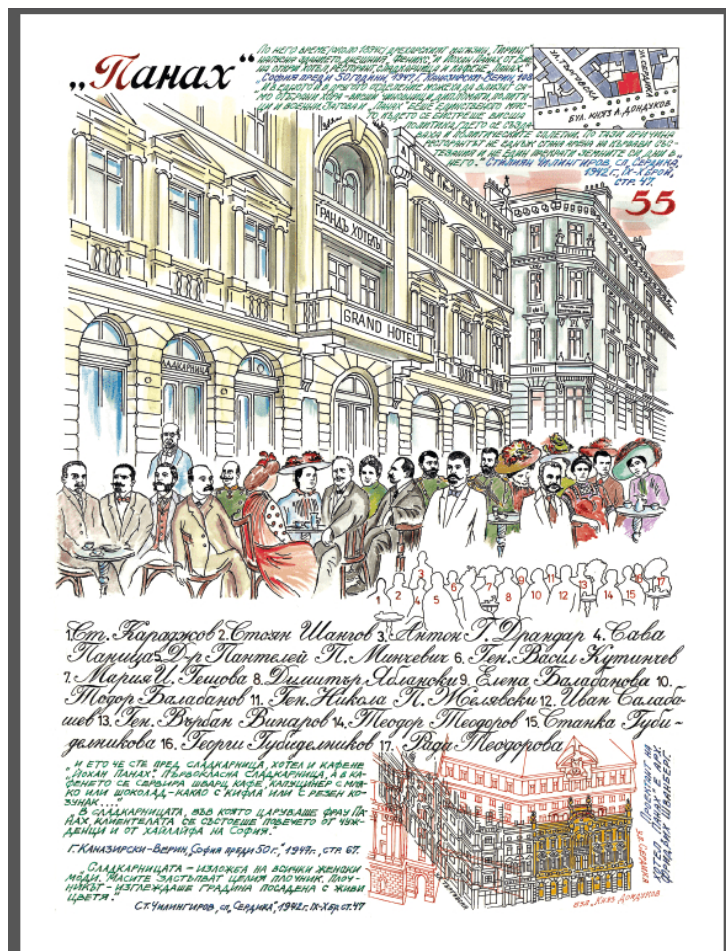 „Панах“
По него време /около 1896г./ дрехарският магазин „Тиринг“
„София преди 50 години, 1947г. Каназирски-Верин, 108
и в едното и в другото отделение можеха да влизат са-
мо отбрани хора - висши чиновници, дипломати, политици
и военни. Заговор и „Панах“ беше единственото мяс-
то, където се бистреше висша
политика, където се създа-
ваха и политическите сплетни. По тази причина
ресторантът не веднъж стана арена на кървави със-
тезания и не един прекрати земните си дни в
него.“ Стилиян Чилингиров, сп. „Сердика“
1942г., IX-X брой,
стр. 47.
ул. Търговска
ул. Сердика
бул. Княз А. Дондуков
55
ГРАНДЪ ХОТЕЛЪ
GRAND HOTEL
СЛАДКАРНИЦА
1 2 3 4 5 6 7 8 9 10 11 12 13 14 15 16 17
1. Ст. Караджов 2. Стоян Шангов 3. Антон Г. Драндар 4. Сава
Паница 5. Д-р Пантелей П. Минчевич 6. Ген. Васил Кутинчев
7. Мария И. Гешова 8. Димитър Яблански 9. Елена Балабанова 10.
Тодор Балабанов 11. Ген. Никола П. Желявски 12. Иван Салаба-
шев 13. Ген. Върбан Винаров 14. Теодор Теодоров 15. Станка Губи-
делникова 16. Георги Губиделников 17. Ради Теодорова
„И ето че сте пред сладкарница, хотел и кафене
„Йохан Панах“. Първокласна сладкарница, а в ка-
фенето се сервира шварц кафе, капуцинер с мля-
ко или шоколад - какао с кифла или с резен ко-
зунак...“
„В сладкарницата, във която царуваше фрау Па-
нах, клиентелата се състоеше повечето от чуж-
денци и от хайлайфа на София.“
Г. Каназирски-Верин, „София преди 50 г.“, 1947г., стр 67.
„Сладкарницата - изложба на всички женски
моди. Масите застъпват целия площник. Плоч-
никът - изглеждаше градина посадена с живи
цветя.“
Ст. Чилингиров, сп. „Сердика“, 1942 г. IX-X бр. ст. 47
Проектант на
хотел „Панах“ е арх.
Фридрих Шванберг.
ул. Сердика
Търговска
бул. „Княз Дондуков